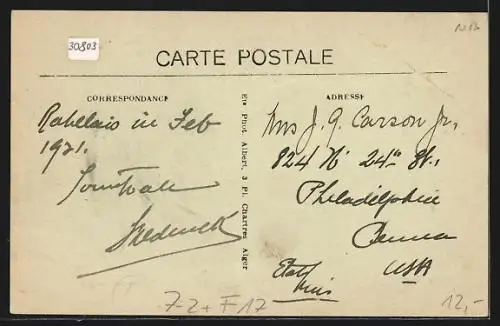 30803
CARTE POSTALE
CORRESPONDANCE
Rabelais in Feb
1921.
Frederick
Ets Phot. Albert, 3 Pl. Chartres Alger
ADRESSE
Mrs J. G. Carson Jr,
824 N 24th St.,
Philadelphia
Penna
Etats
Unis
USA
7-2+F17
12,-